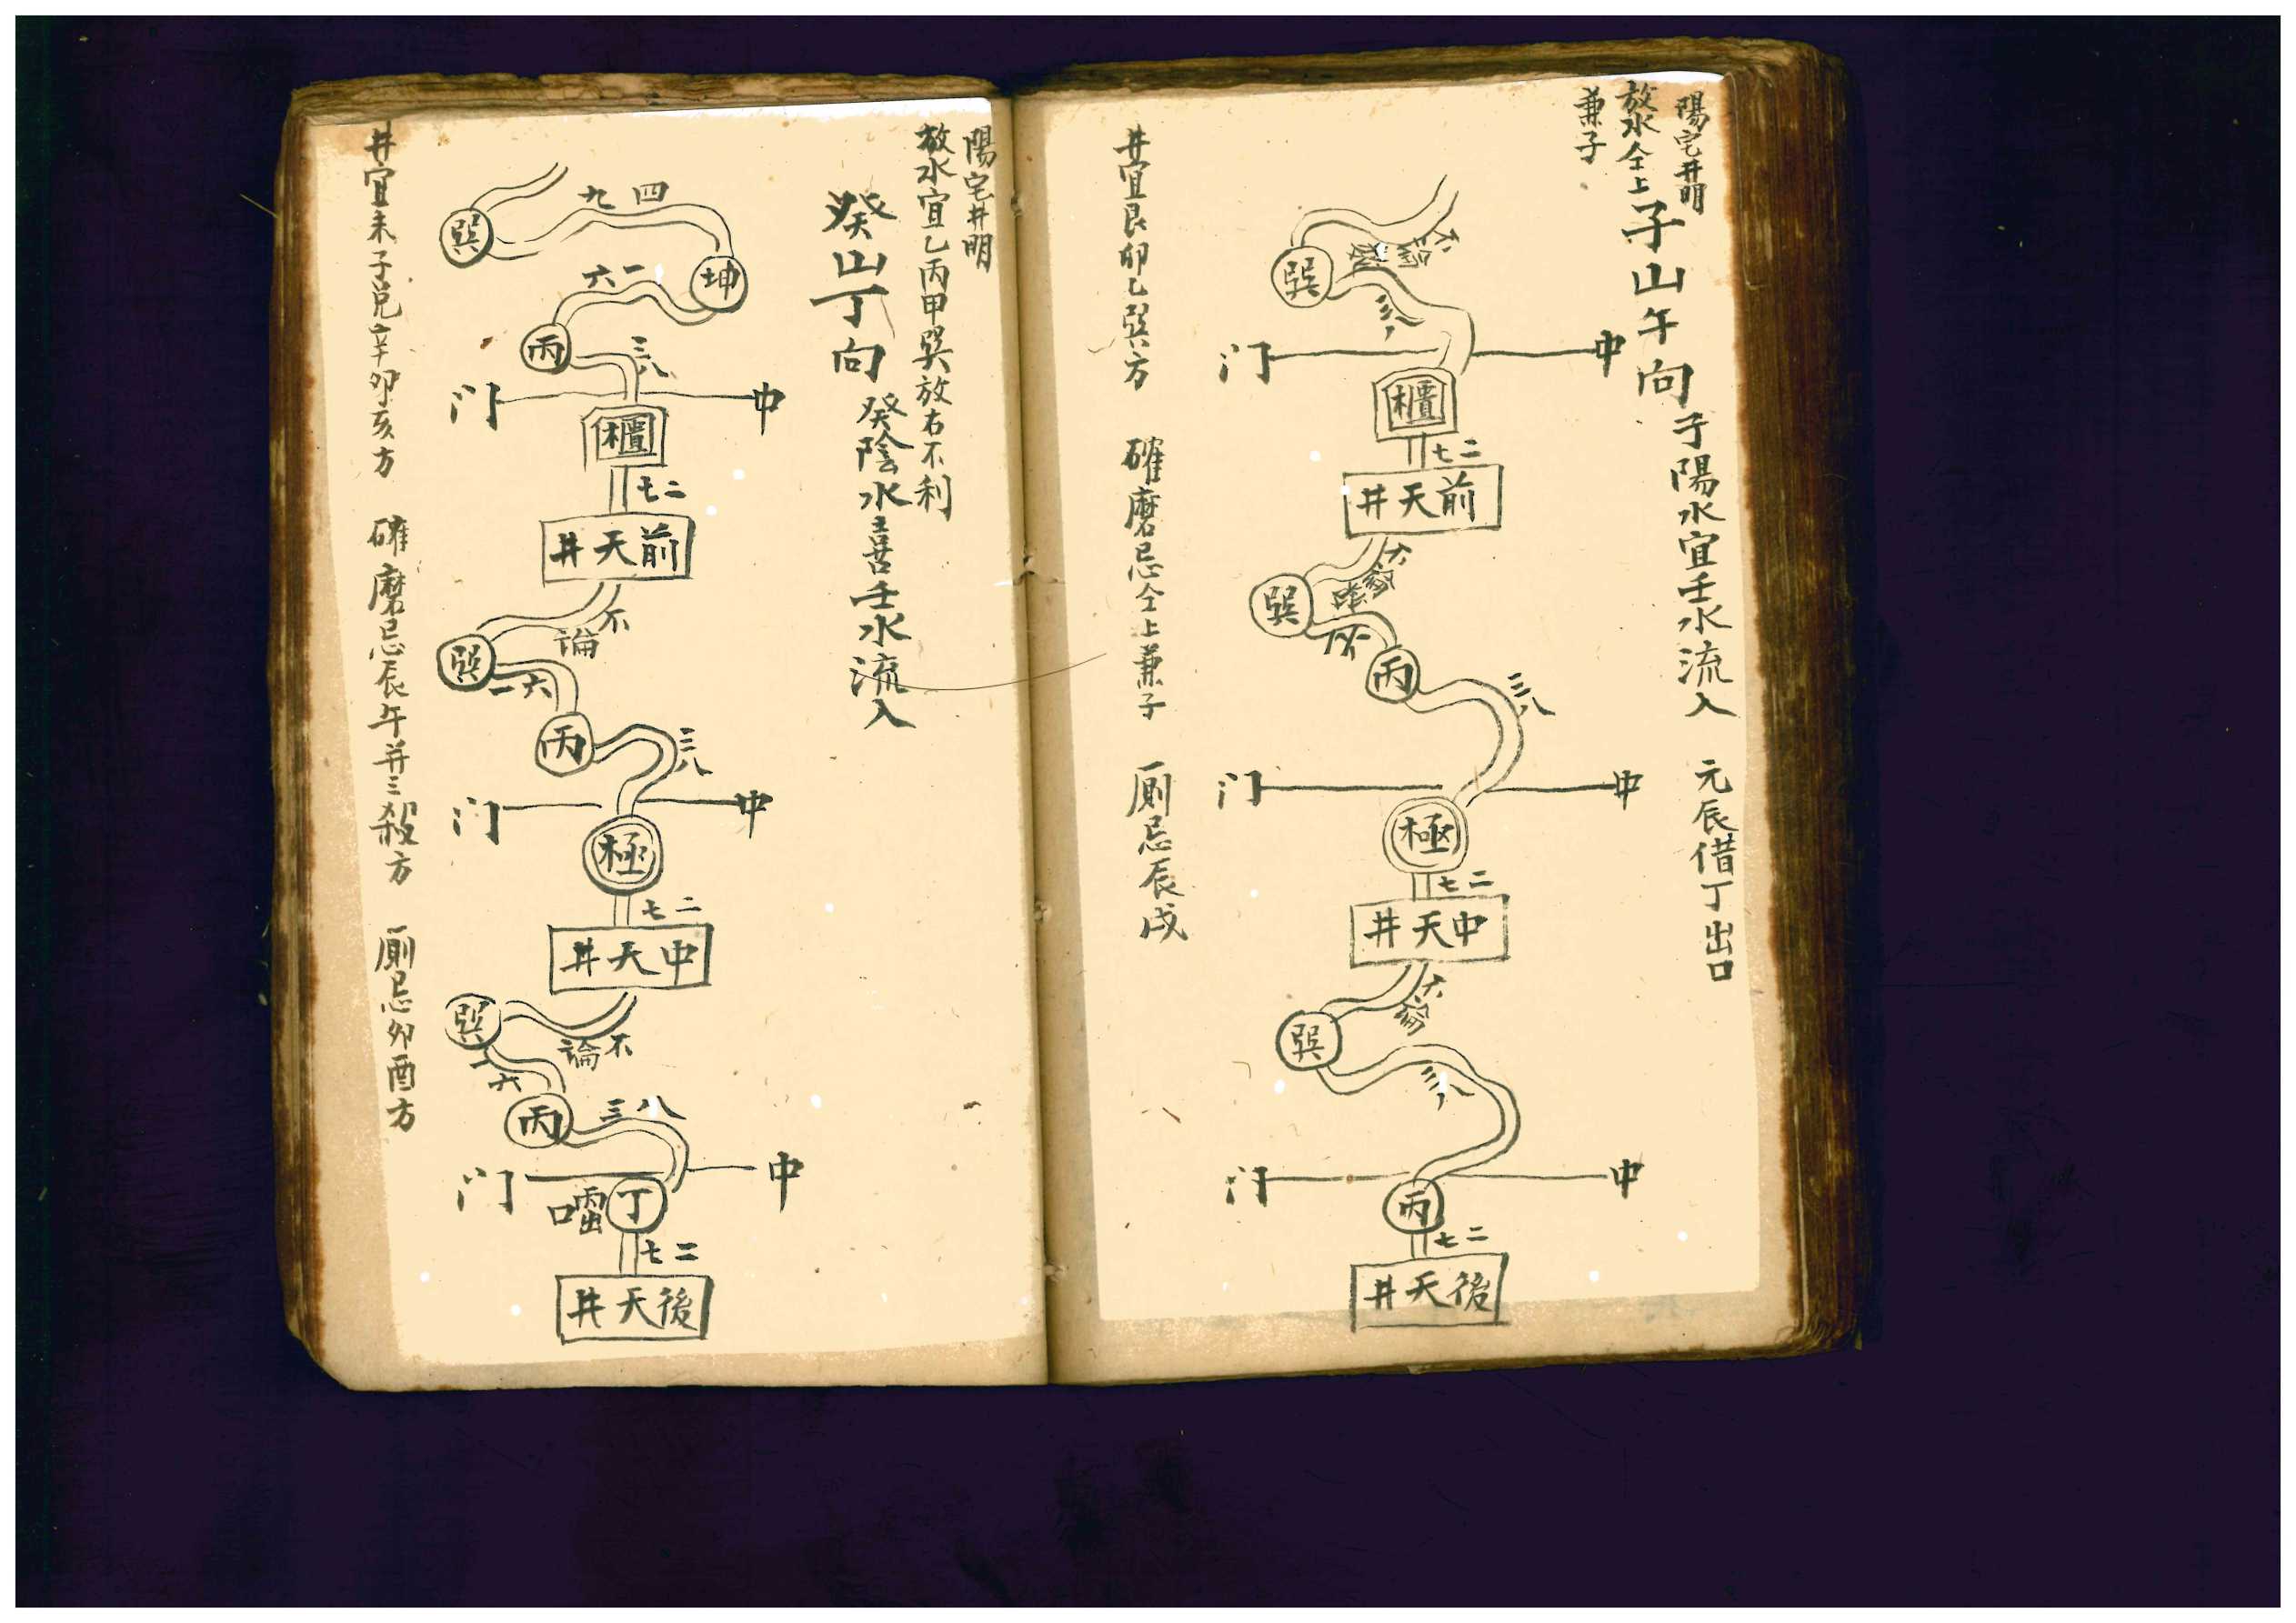 陽宅井明
放水仝上
兼子
子山午向
子陽水宜壬水流入
元辰借丁出口
巽
三八
门
中
櫃
七二
井天前
巽
丙
三八
门
中
極
七二
井天中
巽
三八
门
中
丙
七二
井天後
井宜艮卯乙巽方
磨忌仝上兼子
厠忌辰戌
陽宅井明
放水宜乙丙甲巽放右不利
癸山丁向
癸陰水喜壬水流入
九四
巽
坤
六一
丙
三八
门
中
櫃
七二
井天前
不論
巽
一六
丙
三八
门
中
極
七二
井天中
論不
巽
一六
丙
三八
门
中
丁
七二
井天後
井宜未子兑辛卯亥方
磨忌辰午并三殺方
厠忌卯酉方